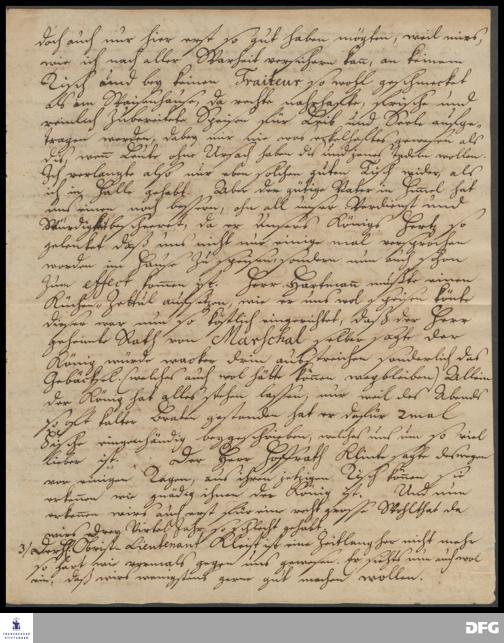 doch auch nur hier erst so gut haben mögten, weil mirs,
wie ich nach aller Warheit versichern kan, an keinem
Tisch und bey keinen Traiteur so wohl geschmecket
als am Waisenhause, da rechte nahrhafte, frische und
reinlich zubereitete Speisen für Leib und Seele aufge-
tragen werden, dabey mir nie was eckelhaftes gewesen als
diß, wenn Leute ohne Ursach haben dis und jenes tadeln wollen.
Ich verlangte also mir eben solchen guten Tisch wieder, als
ich in Halle gehabt. Aber der gütige Vater im Himel hat
uns einen noch bessern, ohn all unser Verdienst und
Würdigkeit bescheeret, da er unsers Königs Hertz so
gelencket daß uns nicht nur einige mal versprochen
worden im Hause zu speisen, sondern nun auch schon
zum effect komen ist. Herr Hartman mußte einen
Küchen-Zettul aufsetzen, wie er uns wol speisen könte
dieser war nun so köstlich eingerichtet, daß der Herr
geheimte Rath von Marschal selber sagte der
König würde wacker drin ausstreichen sonderlich das
Gebackel, welches auch wol hätte können wegbleiben, Allein
der König hat alles stehen lassen, nur weil des Abends
so oft kalter Braten gestanden hat er dafür 2 mal
Fische eigenhändig beygeschrieben, welches uns um so viel
lieber ist. Der Herr Hoffrath Klinte sagte deswegen
vor einigen Tagen, aus ihren jetzigen Tisch können sie
erkennen wie gnädig ihnen der König ist. Und nun
erkennen wirs auch erst für eine recht grosse Wohlthat da
wirs drey Viertel Jahr so schlecht gehabt.
3) Der H. Obrist Lieutenant Kleist ist eine Zeitlang her nicht mehr
so hart wie vormals, gegen uns gewesen. Er siehts nun auch wol
ein, daß wirs wenigstens gerne gut machen wollen.
FRANCKESCHE
STIFTUNGEN
DFG